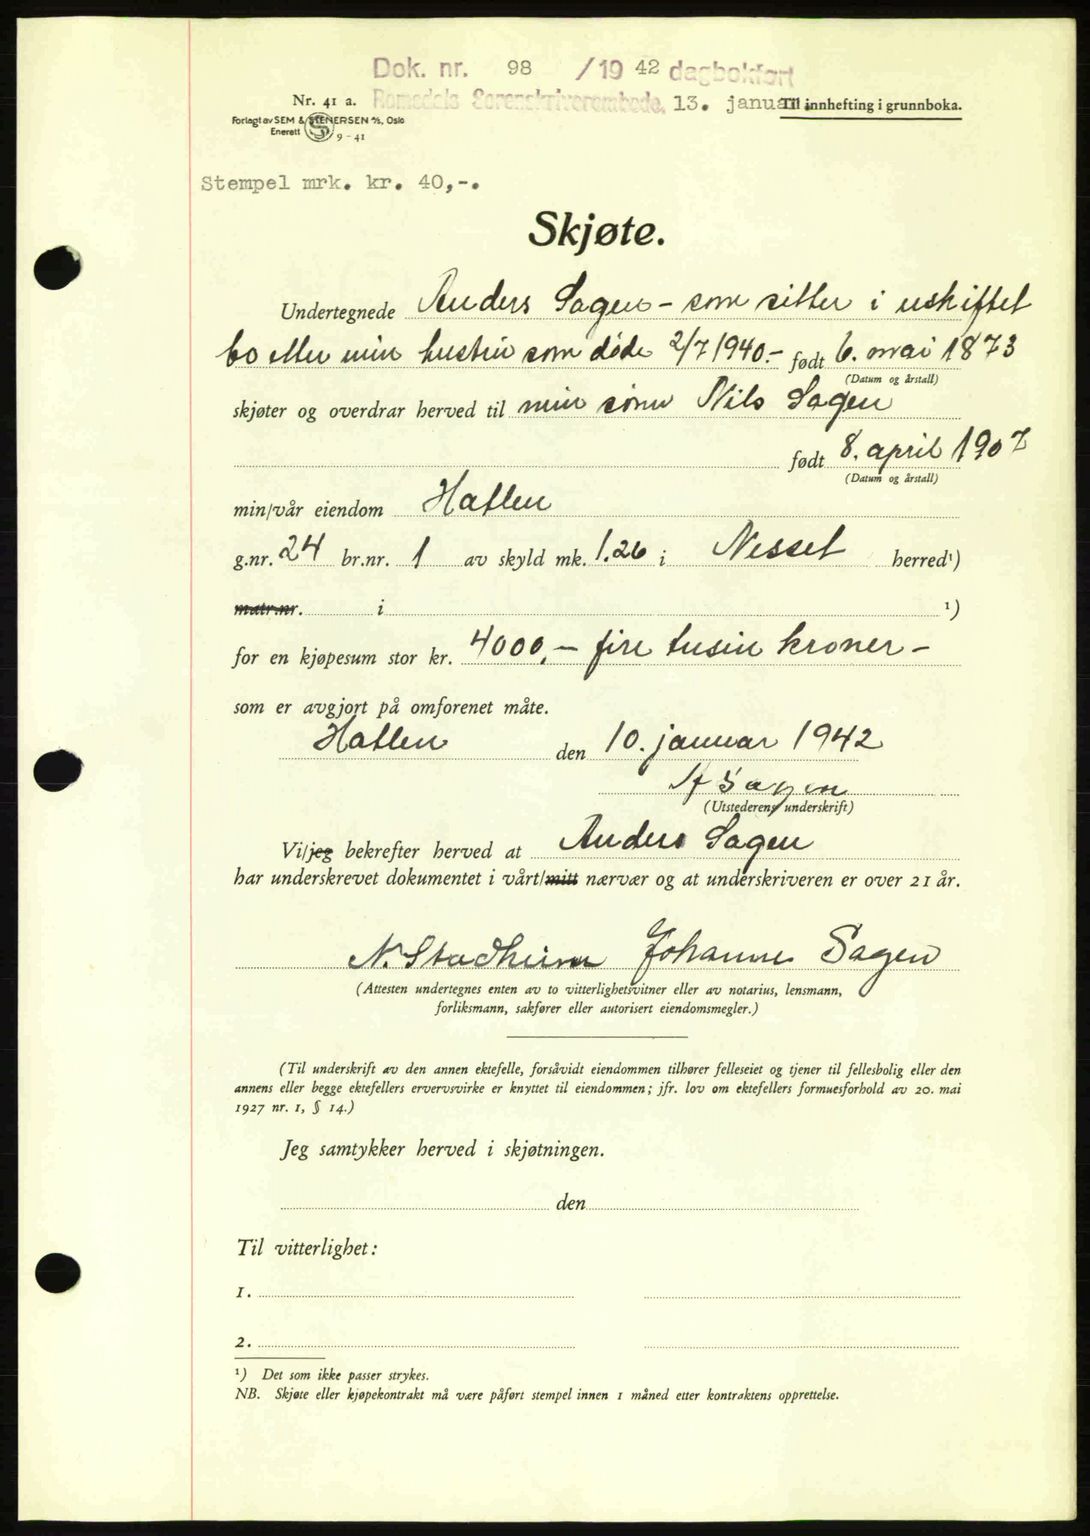 Dok. nr. 98 /19 42 dagbokført
Nr. 41 a. Romsdals Sorenskriverembede. 13. januar. Til innhefting i grunnboka.
Forlagt av SEM & STENERSEN A/S, Oslo
Enerett S 9 - 41
Stempel mrk. kr. 40,-.
Skjøte.
Undertegnede Anders Sagen - som sitter i uskiftet
bo etter min hustru som døde 2/7 1940.- født 6. mai 1873
(Datum og årstall)
skjøter og overdrar herved til min sønn Nils Sagen
født 8. april 1907
(Datum og årstall)
min/vår eiendom Hatlen
g.nr. 24 br.nr. 1 av skyld mk. 1.26 i Nesset herred¹)
matr.nr. i ¹)
for en kjøpesum stor kr. 4000,- fire tusin kroner -
som er avgjort på omforenet måte.
Hatlen den 10. januar 1942
A Sagen
(Utstederens underskrift)
Vi/jeg bekrefter herved at Anders Sagen
har underskrevet dokumentet i vårt/mitt nærvær og at underskriveren er over 21 år.
N. Stadheim Johanne Sagen
(Attesten undertegnes enten av to vitterlighetsvitner eller av notarius, lensmann,
forliksmann, sakfører eller autorisert eiendomsmegler.)
(Til underskrift av den annen ektefelle, forsåvidt eiendommen tilhører felleseiet og tjener til fellesbolig eller den
annens eller begge ektefellers ervervsvirke er knyttet til eiendommen; jfr. lov om ektefellers formuesforhold av 20. mai
1927 nr. 1, § 14.)
Jeg samtykker herved i skjøtningen.
den
Til vitterlighet:
1.
2.
¹) Det som ikke passer strykes.
NB. Skjøte eller kjøpekontrakt må være påført stempel innen 1 måned etter kontraktens opprettelse.